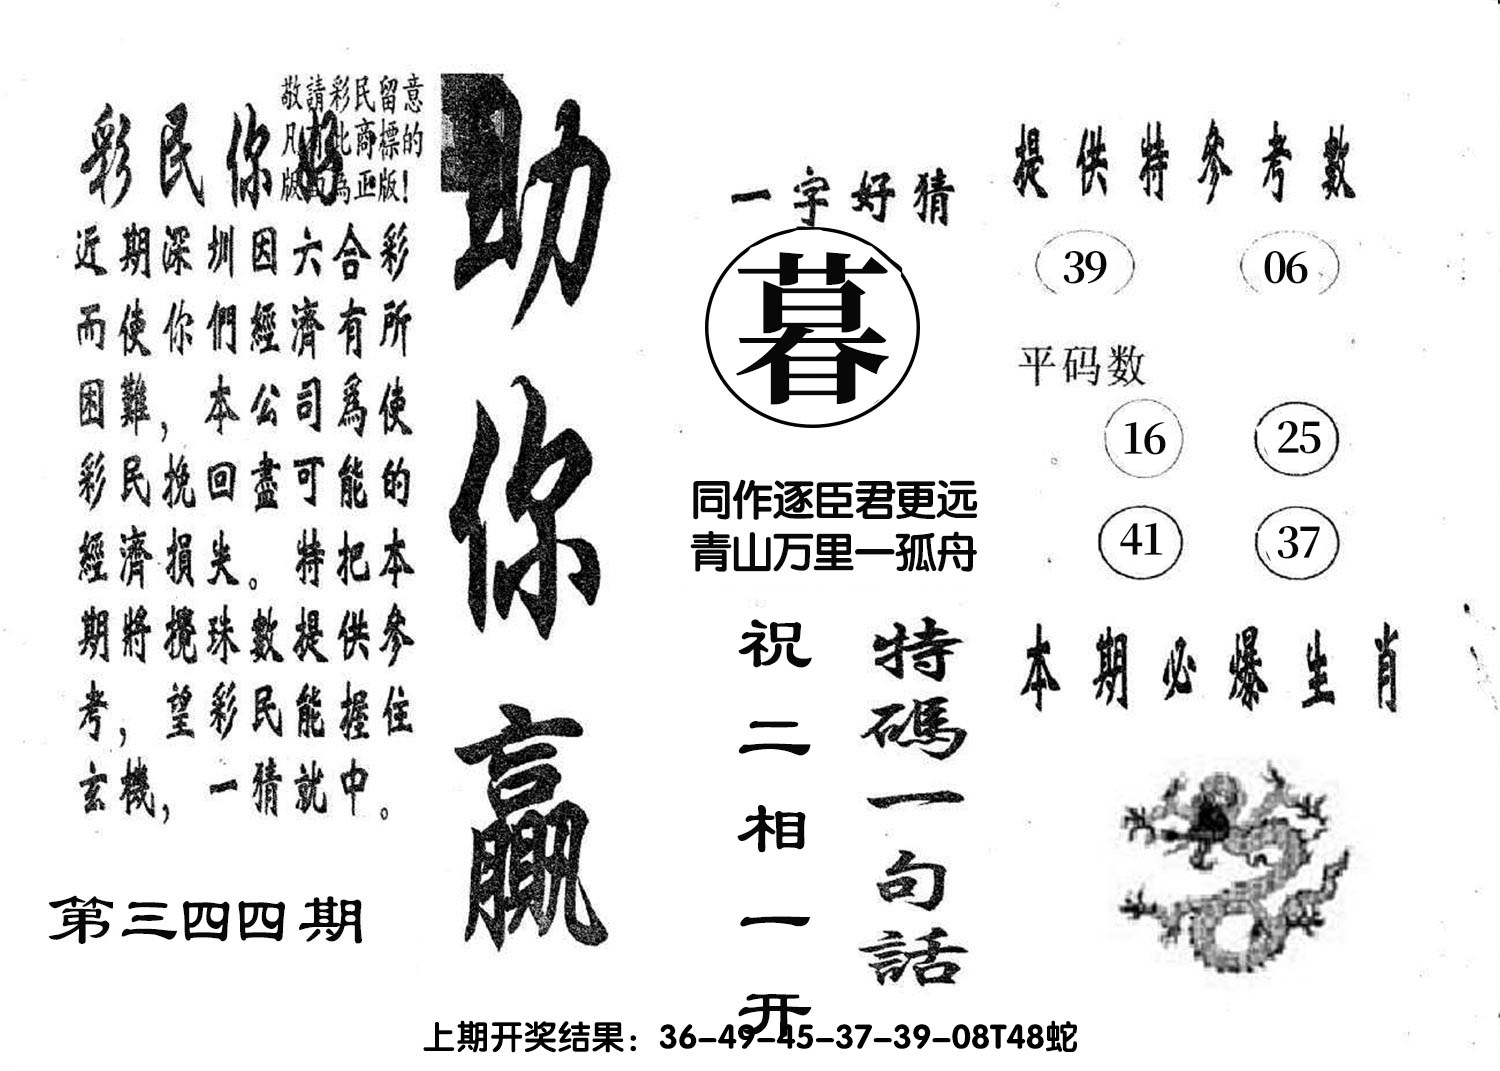 敬請彩民留意
凡有此商標的
版面為正版！
彩民你好
近期深圳因六合彩
而使你們經濟有所
困難，本公司爲使
彩民挽回盡可能的
經濟損失。特把本
期將攪珠數提供參
考，望彩民能握住
玄機，一猜就中。
第三四四期
助你贏
一字好猜
暮
同作逐臣君更远
青山万里一孤舟
特碼一句話
祝二相一开
提供特參考數
39 06
平码数
16 25
41 37
本期必爆生肖
上期开奖结果：36-49-45-37-39-08T48蛇